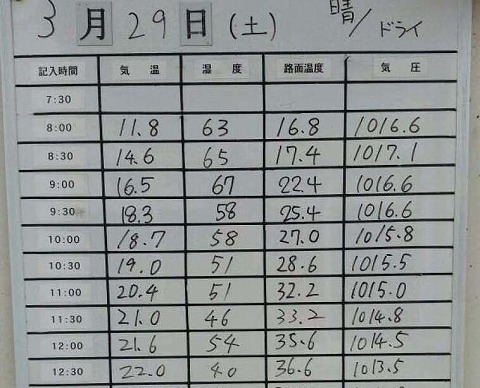 3月29日(土) 晴/ドライ
記入時間 気温 湿度 路面温度 気圧
7:30
8:00 11.8 63 16.8 1016.6
8:30 14.6 65 17.4 1017.1
9:00 16.5 67 22.4 1016.6
9:30 18.3 58 25.4 1016.6
10:00 18.7 58 27.0 1015.8
10:30 19.0 51 28.6 1015.5
11:00 20.4 51 32.2 1015.0
11:30 21.0 46 33.2 1014.8
12:00 21.6 54 35.6 1014.5
12:30 22.0 40 36.6 1013.5